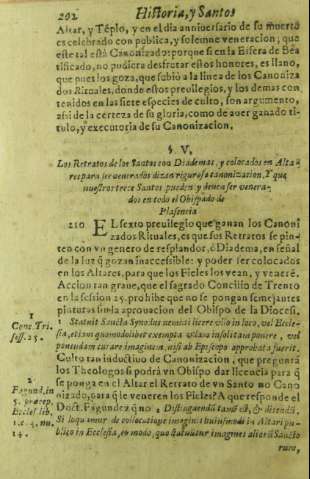 202 Historia, y Santos
Altar, y Tēplo, y en el dia anniversario de su muerte
es celebrado con publica, y solemne veneracion; que
este tal està Canonizado: porque si en la Esfera de Bea
tificado, no pudiera desfrutar estos honores, es llano,
que pues los goza, que subiò a la linea de los Canoniza
dos Rituales, donde estos previlegios, y los demas con
tenidos en las siete especies de culto, son argumento,
assi de la certeza de su gloria, como de auer ganado ti-
tulo, y executoria de su Canonizacion.
§. V.
Los Retratos de los Santos con Diademas, y colocados en Alta
res para ser venerados dizen rigurosa canonization, Y que
nuestros trece Santos pueden y deuen ser venera-
dos en todo el Obispado de
Plasencia
210 EL sexto preuilegio que ganan los Canoni
zados Rituales, es que sus Retratos se pin-
ten con vn genero de resplandor, ò Diadema, en señal
de la luz q̃ gozan inaccessible: y poder ser colocados
en los Altares, para que los Fieles los vean, y venerē.
Accion tan graue, que el sagrado Concilio de Trento
en la session 25. prohibe que no se pongan semejantes
pinturas sin la aprouacion del Obispo de la Diocesi.
1
Conc. Tri.
sess. 25.
1 Statuit Sancta Synodus nemini licere vllo in loco, vel Eccle-
sia, etiam quomodolibet exempta vllam insolitam ponere, vel
ponendam curare imaginem, nisi ab Episcopo approbata fuerit.
Culto tan inductiuo de Canonizacion, que pregunta
los Theologos si podrà vn Obispo dar licencia para q̃
se ponga en el Altar el Retrato de vn Santo no Cano
nizado, para q̃ le veneren los Fieles? A que responde el
Doct. Fagundez q̃ no 2 Distinguendū tamē est, & dicendū.
2
Fagund. in
5. præcep.
Eccles. lib.
1. c. 5. nu.
14.
Si loquamur de collocatione imaginis huiusmodi in Altari pu-
blico in Ecclesia, eo modo, quo statuūtur imagines aliorū Sancto
rum,